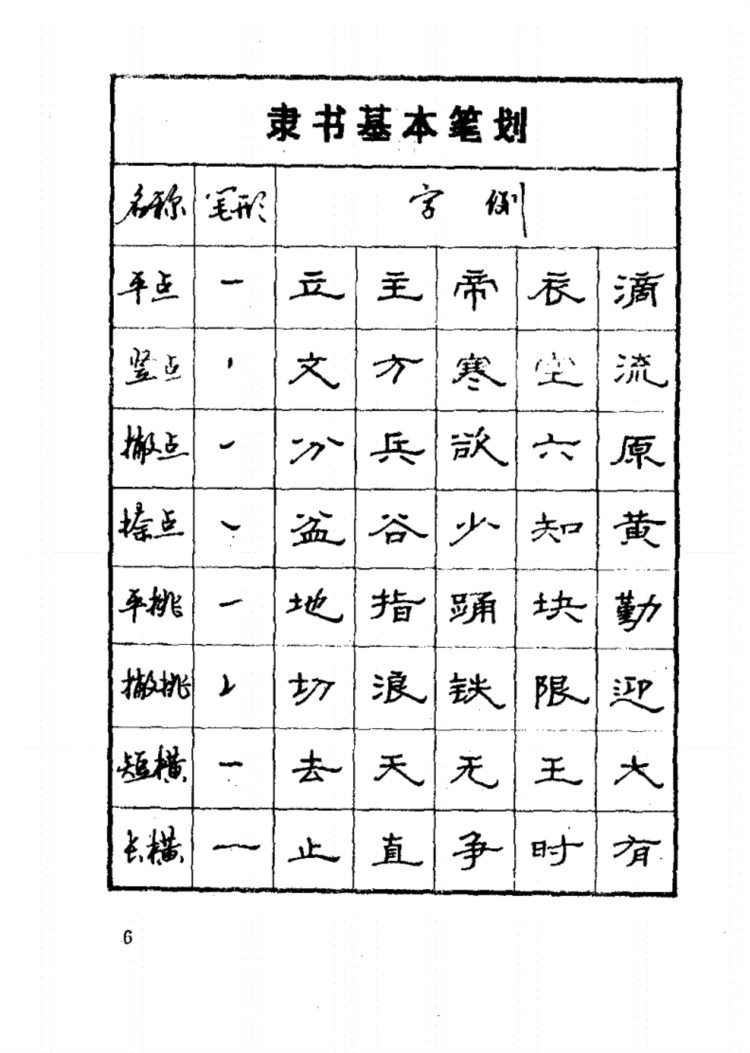 隶书基本笔划
名称 笔形 字例
平点 立 主 帝 衣 滴
竖点 文 方 寒 空 流
撇点 分 兵 欲 六 原
捺点 盆 谷 少 知 黄
平挑 地 指 踊 块 勤
撇挑 切 浪 铁 限 迎
短横 去 天 无 王 大
长横 止 直 争 时 有
6